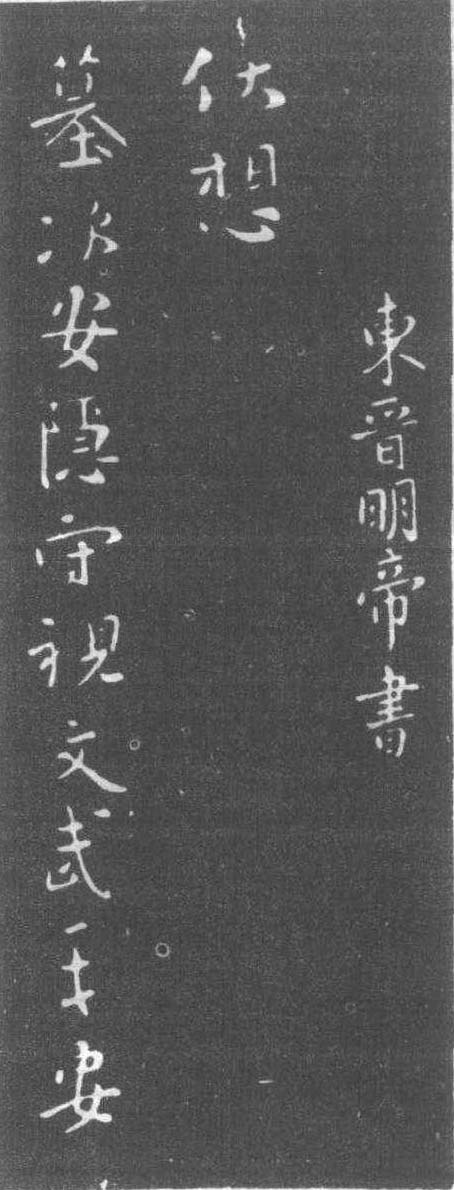 東晉明帝書
伏想
墓次安隱守視文武平安